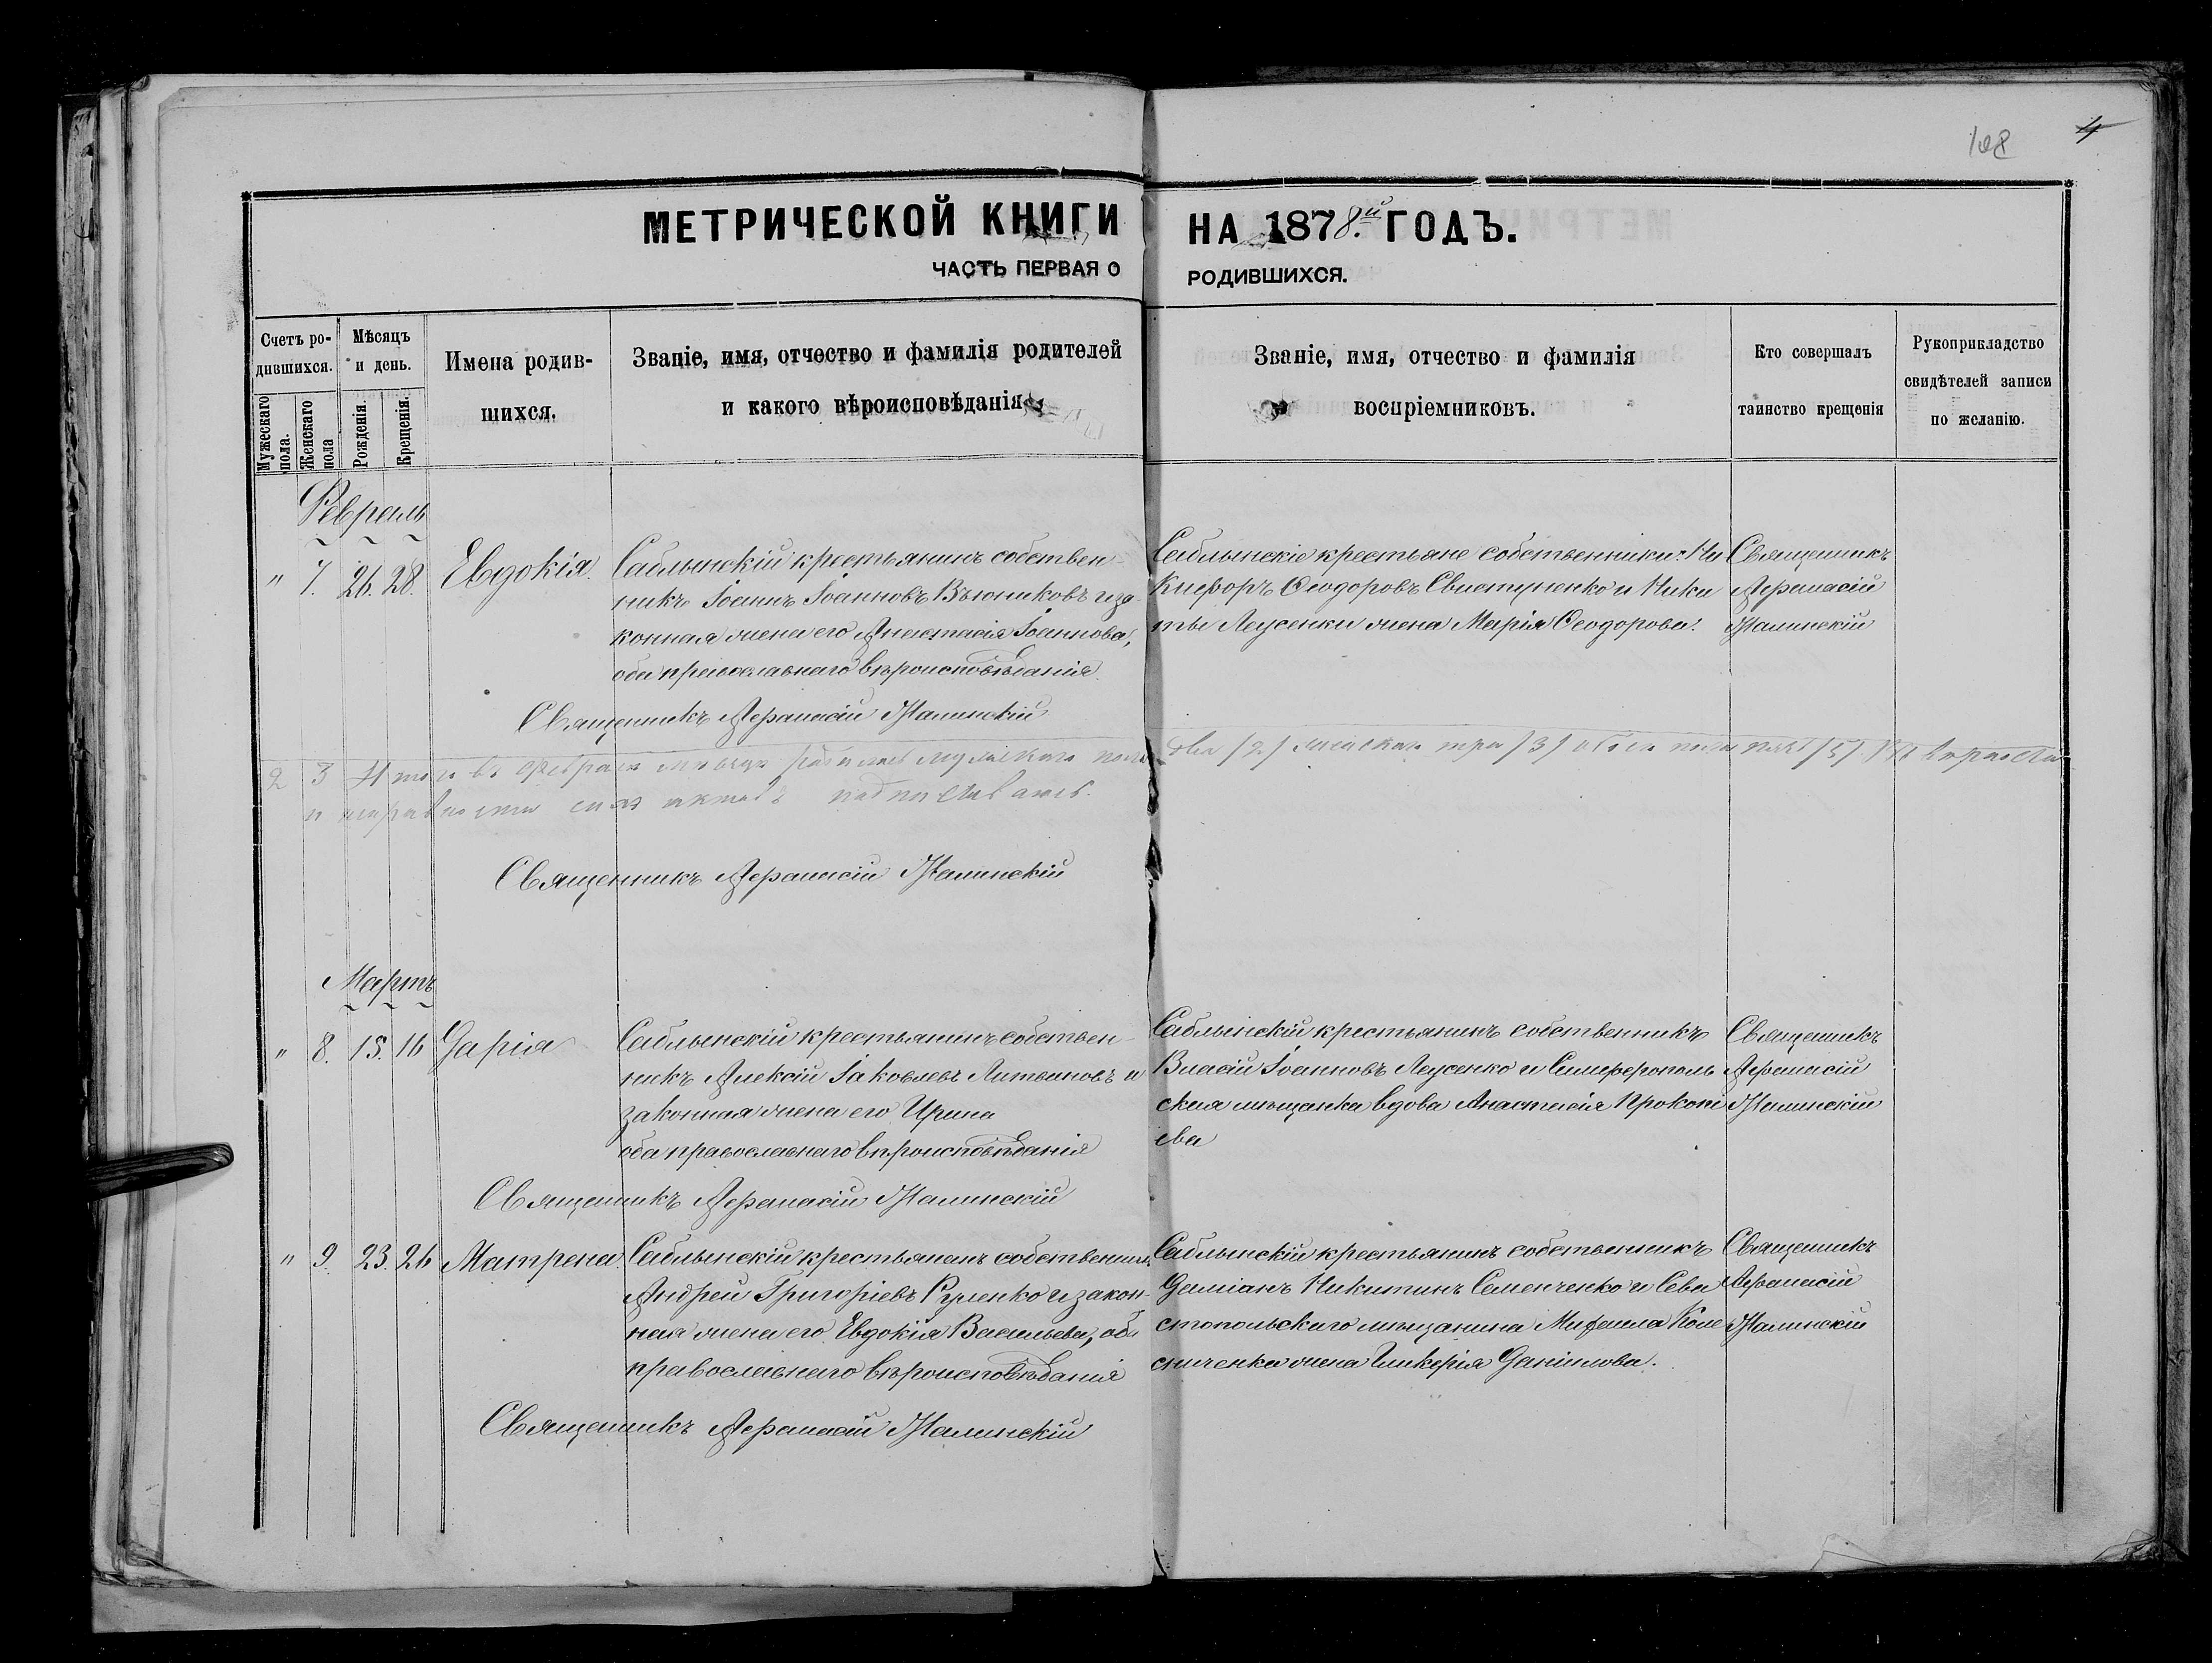 108 4
МЕТРИЧЕСКОЙ КНИГИ НА 1878.й ГОДЪ.
ЧАСТЬ ПЕРВАЯ О РОДИВШИХСЯ.
Счетъ ро-
дившихся.
Мужескаго пола.
Женскаго пола
Мѣсяцъ
и день.
Рожденія.
Крещенія.
Имена родив-
шихся.
Званіе, имя, отчество и фамилія родителей
и какого вѣроисповѣданія
Званіе, имя, отчество и фамилія
воспріемниковъ.
Кто совершалъ
таинство крещенія
Рукоприкладство
свидѣтелей записи
по желанію.
Февраль
" 7. 26. 28. Евдокія.
Саблынскій крестьянинъ собствен
никъ Іоаннъ Іоанновъ Вьюниковъ и за-
конная жена его Анастасія Іоаннова,
оба православнаго вѣроисповѣданія.
Саблынскіе крестьяне собственники: Ни
кифоръ Ѳеодоровъ Свистуненко и Ники
ты Леусенки жена Марія Ѳеодорова.
Священникъ
Афанасій
Налинскій
Священникъ Афанасій Налинскій
2 3 Итого въ Февралѣ мѣсяцѣ родилось мужескаго пола два (2) женскаго три (3) обоего пола пять (5).
подписываюсь.
Священникъ Афанасій Налинскій
Мартъ
" 8. 15. 16 Дарія
Саблынскій крестьянинъ собствен-
никъ Алексій Іаковлевъ Литвиновъ и
законная жена его Ирина
оба православнаго вѣроисповѣданія
Саблынскій крестьянинъ собственникъ
Власій Іоанновъ Леусенко и Симферополь
ская мѣщанка вдова Анастасія Прокопі
ева
Священникъ
Афанасій
Налинскій
Священникъ Афанасій Налинскій
" 9. 23. 26 Матрена.
Саблынскій крестьянинъ собственникъ
Андрей Григоріевъ Руленко и закон-
ная жена его Евдокія Васильева, оба
православнаго вѣроисповѣданія
Саблынскій крестьянинъ собственникъ
Даміанъ Никитинъ Семенченко и Сева
стопольскаго мѣщанина Михаила Коле
сниченка жена Гликерія Даніилова.
Священникъ
Афанасій
Налинскій
Священникъ Афанасій Налинскій